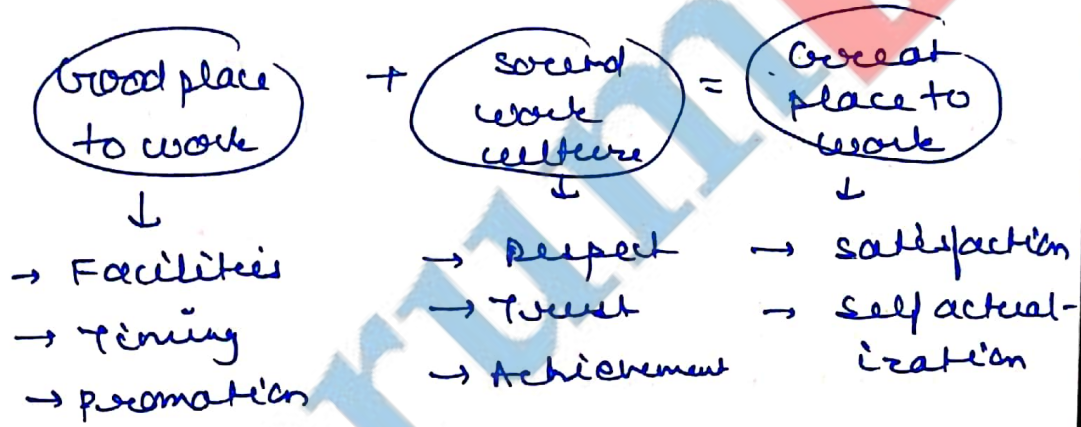 Good place
to work
+
sound
work
culture
=
Great
place to
work
↓
→ Facilities
→ Timing
→ promotion
↓
→ Respect
→ Trust
→ Achievement
↓
→ satisfaction
→ self actual-
ization
rum